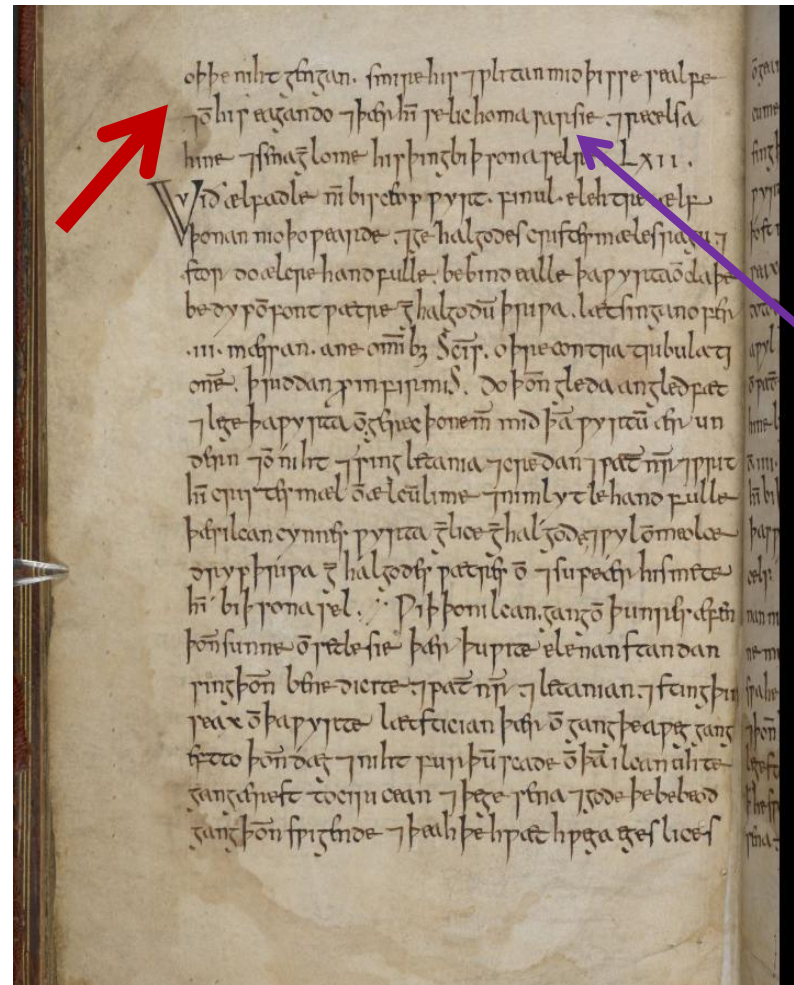 oþþe niht gengan. smire his ⁊ƿlitan mid þisse sealfe
⁊ō his eagan do ⁊þær hī se lichoma sar sie ⁊recelsa
hine ⁊sena ḡlome his þing biþ sona selre LXII.
Ƿið ælfadle nī bisceop ƿyrt. finul. elehtre ælf
þonan nioþoƿearde. ⁊ge halgodes cristes mæles ragu. ⁊
stor do ælcre hand fulle. bebind ealle þa ƿyrta ō claþe
bedyp ō font ƿætre ḡhalgodū þriƿa. læt singan ofer
.III. mæssan. ane omībꝫ Sc̄is. oþre contra tribulati
onē. þriddan ꝓ infirmis. do þon̄ gleda an gledfæt
⁊lege þa ƿyrta ō gerec þone m̄ mid þā ƿyrtū ær un
dern ⁊ō niht ⁊sing letania ⁊credan ⁊pat̄ nr̄ ⁊ƿrit
hī cristes mæl ō ælcū lime ⁊nim lytle hand fulle
þæs ilcan cynnes ƿyrta ḡlice ḡhalgode ⁊ƿyl ō meolce
dryp þriƿa ḡ halgodes ƿætres ō ⁊supe ær his mete
hī biþ sona sel. Ƿiþ þon ilcan. gang ō þunres æfen̄
þon̄ sunne ō setle sie þær þu ƿite elenan standan
sing þon̄ benedicite ⁊pat̄ nr̄ ⁊ letanian. ⁊sting þin
seax ō þa ƿyrte læt stician þær ō gang þe aƿeg gang
eft to þon̄ dæg ⁊niht furþū scade ō þā ilcan uhte
gang ærest to ciricean ⁊ þe gesena ⁊gode þe bebeod
gang þon̄ sƿigende ⁊ þeah þe hƿæt hƿega egeslices